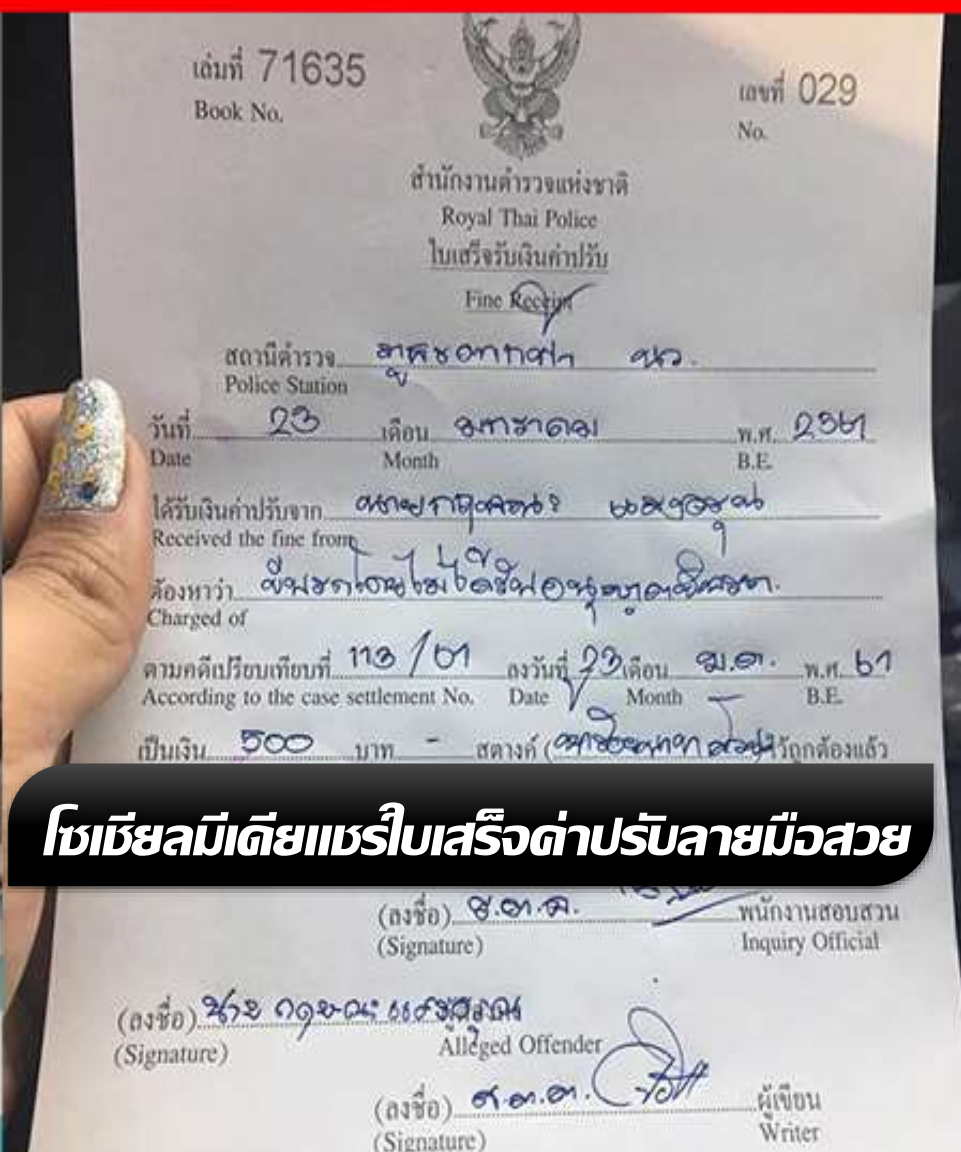 เล่มที่ 71635 เลขที่ 029
Book No. No.
สำนักงานตำรวจแห่งชาติ
Royal Thai Police
ใบเสร็จรับเงินค่าปรับ
Fine Receipt
สถานีตำรวจ
Police Station
วันที่ 23 เดือน มกราคม พ.ศ. 2561
Date Month B.E.
ได้รับเงินค่าปรับจาก
Received the fine from
ต้องหาว่า ขับรถโดยไม่ได้รับอนุญาตขับรถ.
Charged of
ตามคดีเปรียบเทียบที่ 113/61 ลงวันที่ 23 เดือน ม.ค. พ.ศ. 61
According to the case settlement No. Date Month B.E.
เป็นเงิน 500 บาท - สตางค์ (ห้าร้อยบาทถ้วน) ไว้ถูกต้องแล้ว
โซเชียลมีเดียแชร์ใบเสร็จค่าปรับลายมือสวย
(ลงชื่อ) พนักงานสอบสวน
(Signature) Inquiry Official
(ลงชื่อ) นาย
(Signature) Alleged Offender
(ลงชื่อ) ส.ต.ต. ผู้เขียน
(Signature) Writer